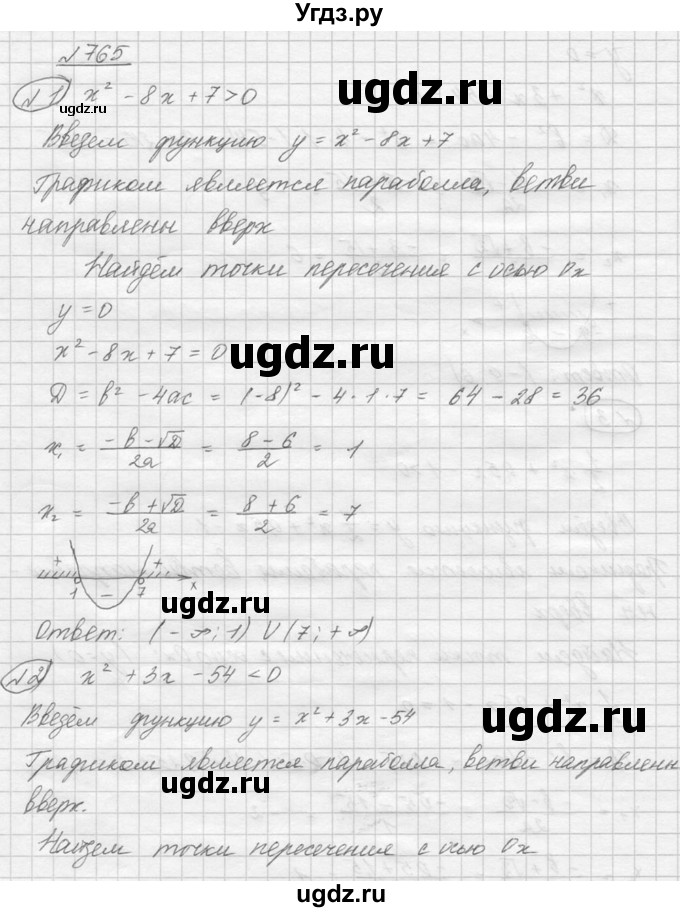 Угдз.ру
№765
№1) x² - 8x + 7 > 0
ugdz.ru
Введем функцию y = x² - 8x + 7
ugdz.ru
Графиком является параболла, ветви
направлены вверх
Найдём точки пересечения с осью Ox
y = 0
x² - 8x + 7 = 0
ugdz.ru
D = b² - 4ac = (-8)² - 4 · 1 · 7 = 64 - 28 = 36
x₁ = (-b - √D)/2a = (8 - 6)/2 = 1
x₂ = (-b + √D)/2a = (8 + 6)/2 = 7
+ - +
1 7 x
ugdz.ru
Ответ: (-∞; 1) U (7; +∞)
№2) x² + 3x - 54 < 0
Введём функцию y = x² + 3x - 54
ugdz.ru
Графиком является параболла, ветви направлен
ugdz.ru
вверх.
Найдем точки пересечения с осью Ox
ugdz.ru